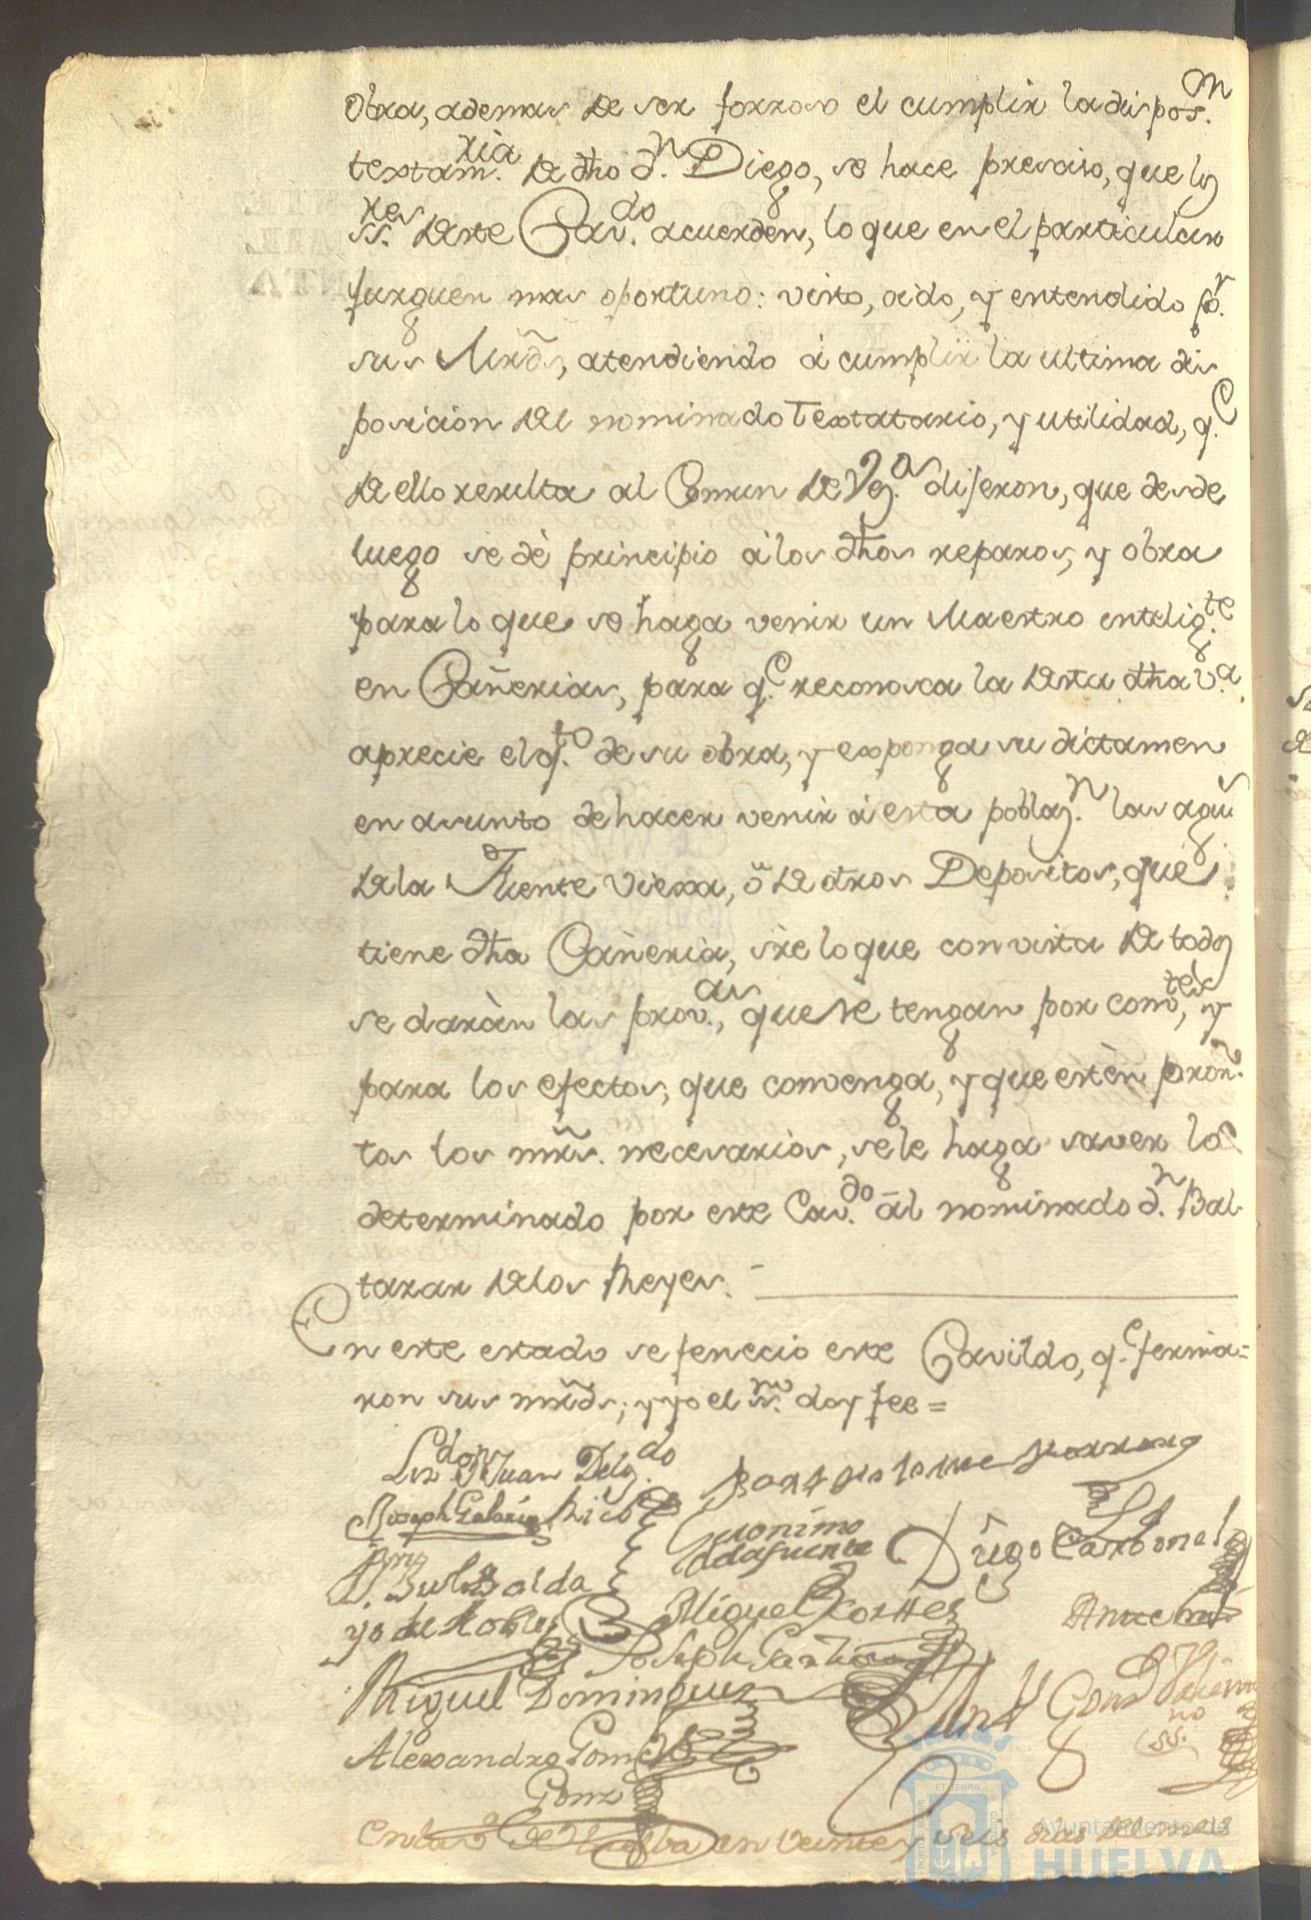 obra, ademas de ser forzoso el cumplir la dispos.on
testam.ria de dho d.n Diego, se hace presciso, que los
ss.res deste Cav.do acuerden, lo que en el particular
jusguen mas oportuno: visto, oido, y entendido po.r
sus Mrds, atendiendo á cumplir la ultima dis
posicion del nominado Testatario, y utilidad, q.e
de ello resulta al Comun de Vez.os dijeron, que desde
luego se dè principio à los dhos reparos, y obra
para lo que se haga venir un Maestro entelig.te
en Cañerias, para q.e reconosca la desta dha v.a
aprecie el q.to de su obra, y exponga su dictamen
en asunto de hacer venir à esta poblaz.n las aguas
de la Fuente Viexa, ò de otros Depositos, que
tiene dha Cañeria, sre lo que con vista de todo
se daràn las prov.as, que se tengan por comv.tes, y
para los efectos, que convenga, y que estèn pron-
tos los mrs. necesarios, se le haga saver lo
determinado por este Cav.do àl nominado d.n Bal
tazar de los Reyes.
En este estado se fenecio este Cavildo, q.e firma=
ron sus mrds; y yo el ss.no doy fee=
Liz.do Dn Juan Delg.do
Joseph Galarín Rico
Geronimo
de la fuente
Diego Carbonel
yo de Robles
Miguel Corttes
Joseph
Miguel Dominguez
Ante mi
Alexandro Gomez
Gonz
ss.no
En la v.a de Huelba en veinte y seis dias del mes
Ayuntamiento de
HUELVA